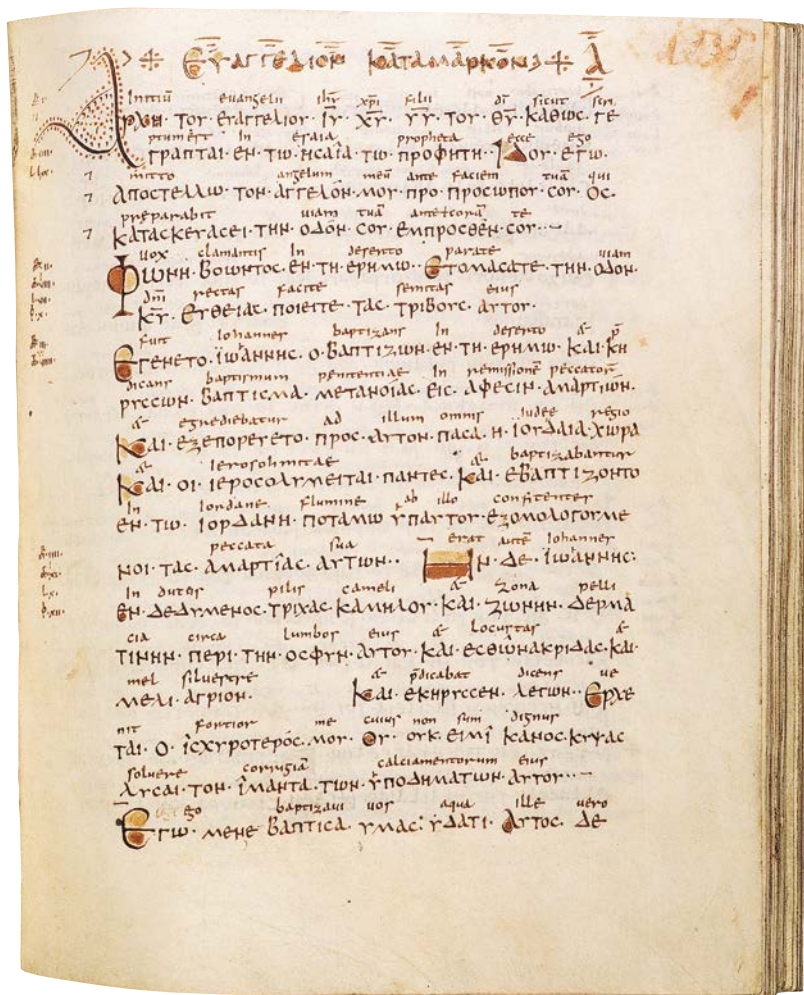 ΕΥΑΓΓΕΛΙΟΝ ΚΑΤΑ ΜΑΡΚΟΝ Α
Initiū euangelii ihū xpi filii di sicut scri
ΑΡΧΗ· ΤΟΥ· ΕΥΑΓΓΕΛΙΟΥ· ΙΥ· ΧΥ· ΥΥ· ΤΟΥ· ΘΥ· ΚΑΘΩC· ΓΕ
ptum est in esaia propheta ecce ego
ΓΡΑΠΤΑΙ· ΕΝ· ΤΩ· ΗCΑΙΑ· ΤΩ· ΠΡΟΦΗΤΗ·· ΙΔΟΥ· ΕΓΩ·
mitto angelum meū ante faciem tuā qui
ΑΠΟCΤΕΛΛΩ· ΤΟΝ· ΑΓΓΕΛΟΝ· ΜΟΥ· ΠΡΟ· ΠΡΟCΩΠΟΥ· CΟΥ· ΟC·
preparabit uiam tuā ante te
ΚΑΤΑCΚΕΥΑCΕΙ· ΤΗΝ· ΟΔΟΝ· CΟΥ· ΕΜΠΡΟCΘΕΝ· CΟΥ··
uox clamantis in deserto parate uiam
ΦΩΝΗ· ΒΟΩΝΤΟC· ΕΝ· ΤΗ· ΕΡΗΜΩ·· ΕΤΟΜΑCΑΤΕ· ΤΗΝ· ΟΔΟΝ·
dni rectas facite semitas eius
ΚΥ· ΕΥΘΕΙΑC· ΠΟΙΕΙΤΕ· ΤΑC· ΤΡΙΒΟΥC· ΑΥΤΟΥ·
fuit iohannes baptizans in deserto & p̄
ΕΓΕΝΕΤΟ· ΙΩΑΝΝΗC· Ο· ΒΑΠΤΙΖΩΝ· ΕΝ· ΤΗ· ΕΡΗΜΩ· ΚΑΙ· ΚΗ
dicans baptismum penitentiae in remissionē peccatorū
ΡΥCCΩΝ· ΒΑΠΤΙCΜΑ· ΜΕΤΑΝΟΙΑC· ΕΙC· ΑΦΕCΙΝ· ΑΜΑΡΤΙΩΝ·
& egrediebatur ad illum omnis iudee regio
ΚΑΙ· ΕΞΕΠΟΡΕΥΕΤΟ· ΠΡΟC· ΑΥΤΟΝ· ΠΑCΑ· Η· ΙΟΥΔΑΙΑ· ΧΩΡΑ
& ierosolimitae & baptizabantur
ΚΑΙ· ΟΙ· ΙΕΡΟCΟΛΥΜΕΙΤΑΙ· ΠΑΝΤΕC· ΚΑΙ· ΕΒΑΠΤΙΖΟΝΤΟ
in iordane flumine ab illo confitentes
ΕΝ· ΤΩ· ΙΟΡΔΑΝΗ· ΠΟΤΑΜΩ ΥΠΑΥΤΟΥ· ΕΞΟΜΟΛΟΓΟΥΜΕ
peccata sua erat autē iohannes
ΝΟΙ· ΤΑC· ΑΜΑΡΤΙΑC· ΑΥΤΩΝ·· ΗΝ· ΔΕ· ΙΩΑΝΝΗC:
indutus pilis cameli & zona pelli
ΕΝ· ΔΕΔΥΜΕΝΟC· ΤΡΙΧΑC· ΚΑΜΗΛΟΥ· ΚΑΙ· ΖΩΝΗΝ· ΔΕΡΜΑ
cia circa lumbos eius & locustas &
ΤΙΝΗΝ· ΠΕΡΙ· ΤΗΝ· ΟCΦΥΝ· ΑΥΤΟΥ· ΚΑΙ· ΕCΘΩΝΑΚΡΙΔΑC· ΚΑΙ·
mel silvestre & p̄dicabat dicens ue
ΜΕΛΙ· ΑΓΡΙΟΝ· ΚΑΙ· ΕΚΗΡΥCCΕΝ· ΛΕΓΩΝ·· ΕΡΧΕ
nit fortior me cuius non sum dignus
ΤΑΙ· Ο· ΙCΧΥΡΟΤΕΡΟC· ΜΟΥ· ΟΥ· ΟΥΚ· ΕΙΜΙ ΚΑΝΟC· ΚΥΨΑC
soluere corrigiā calciamentorum eius
ΛΥCΑΙ· ΤΟΝ· ΙΜΑΝΤΑ· ΤΩΝ· ΥΠΟΔΗΜΑΤΩΝ· ΑΥΤΟΥ··
ego baptizaui uos aqua ille uero
ΕΓΩ· ΜΕΝΕ ΒΑΠΤΙCΑ· ΥΜΑC: ΥΔΑΤΙ· ΑΥΤΟC· ΔΕ